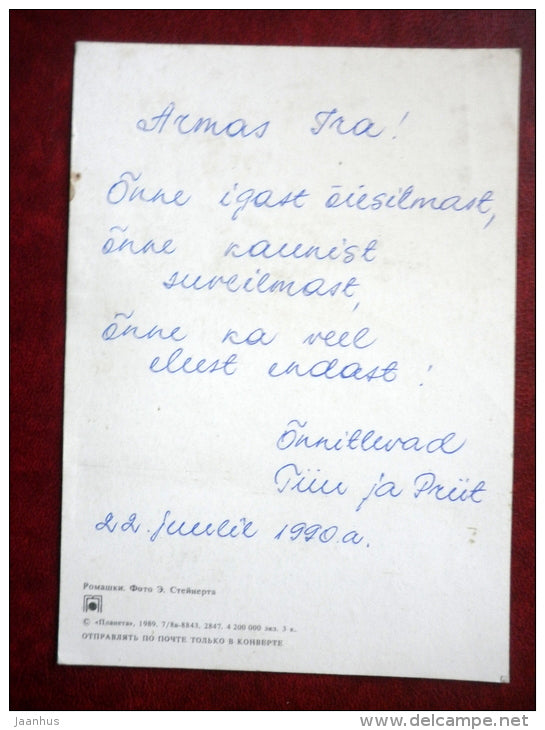 Armas Ira!
Õnne igast õiesilmast,
õnne kaunist
suveilmast,
õnne ka veel
elust endast!
Õnnitlevad
Tiiu ja Priit
22. juulil 1990.a.
Ромашки. Фото Э. Стейнерта
© «Планета», 1989. 7/8а-8843. 2847. 4 200 000 экз. 3 к.
ОТПРАВЛЯТЬ ПО ПОЧТЕ ТОЛЬКО В КОНВЕРТЕ
Jaannus // www.delcampe.net